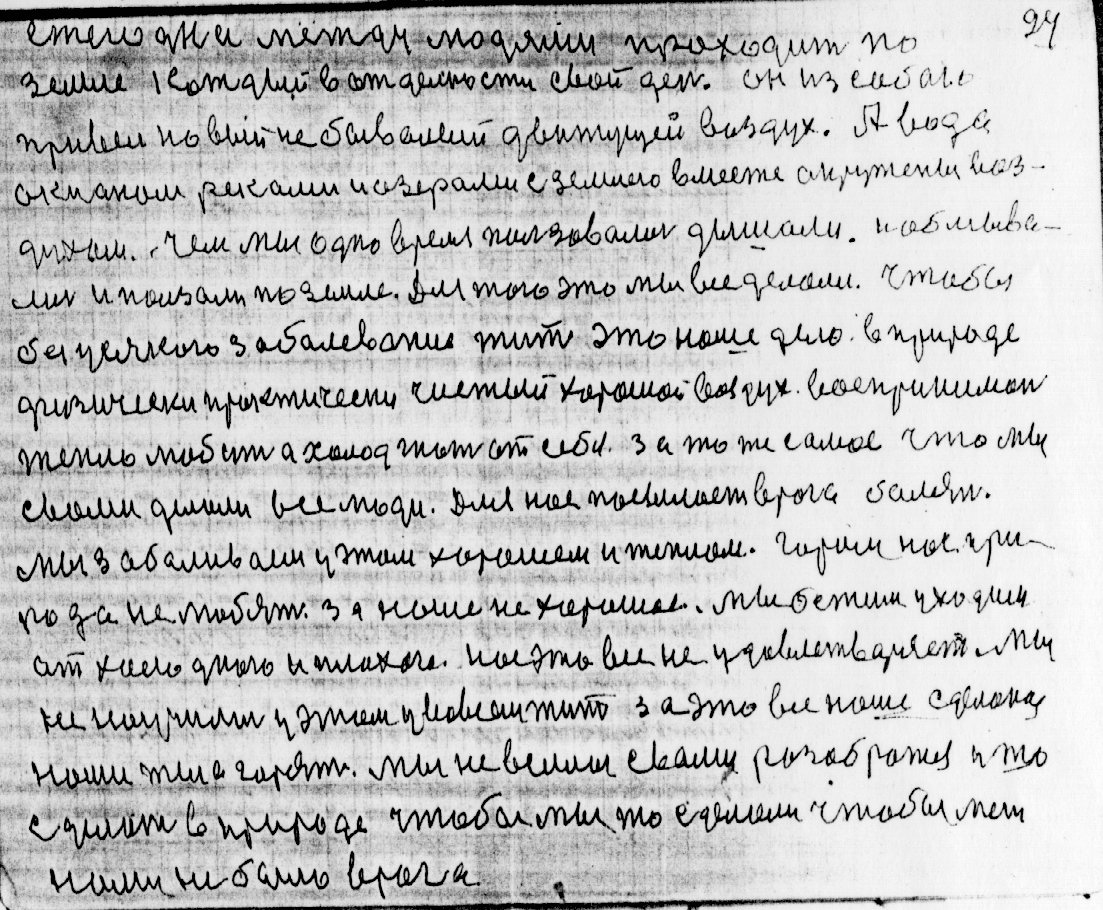 24
ежегодни между людями проходит по
земле кождий в отдельности свой ден. он из собаю
привел новый не бывалий движущей воздух. А вода
акианом реками и озерами с землею вместе окружены воз-
духам. Чем мы одно время ползовалис дышали. и обмыва-
лис и ползали по земле. Для того это мы все делали. чтобы
без усякого заболевание жит это наше дело. в природе
физически практически чистый хорошой воздух воспринимат
тепло любит а холод гнат от себя. за то же самое что мы
свами делали все люди. Для нас посилает врага болят.
мы заболивали у этом хорошем и теплом. горим нас при-
рода не любят. за наше не хорошое. мы бежим уходим
от холодного и плохого. нас это все не удовлетваряет. Мы
не научилис у этом у всвоем жит за это все наше сделаное
наши тела горят. мы не велис свами разобратся и то
сделат в природе чтобы мы то сделали чтобы меж
нами не было врага